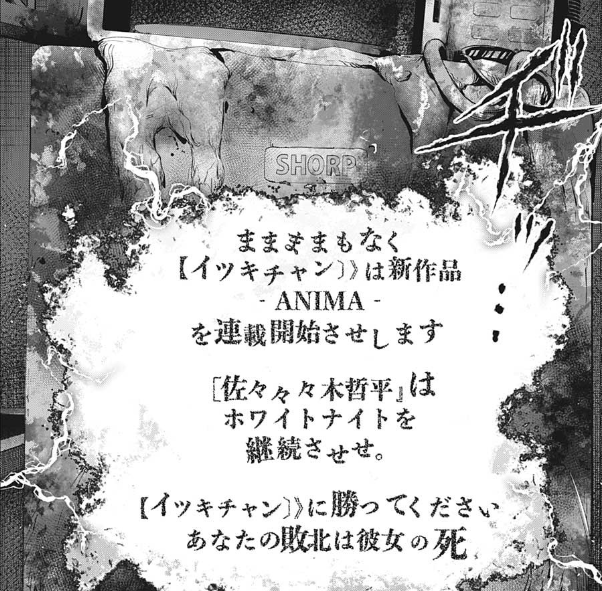 SHORP
ヂヂ…
まままままもなく
【イツキチャン〕》は新作品
- ANIMA -
を連載開始させします
［佐々々々木哲平』は
ホワイトナイトを
継続させせ。
【イツキチャン〕》に勝ってください
あなたの敗北は彼女の死